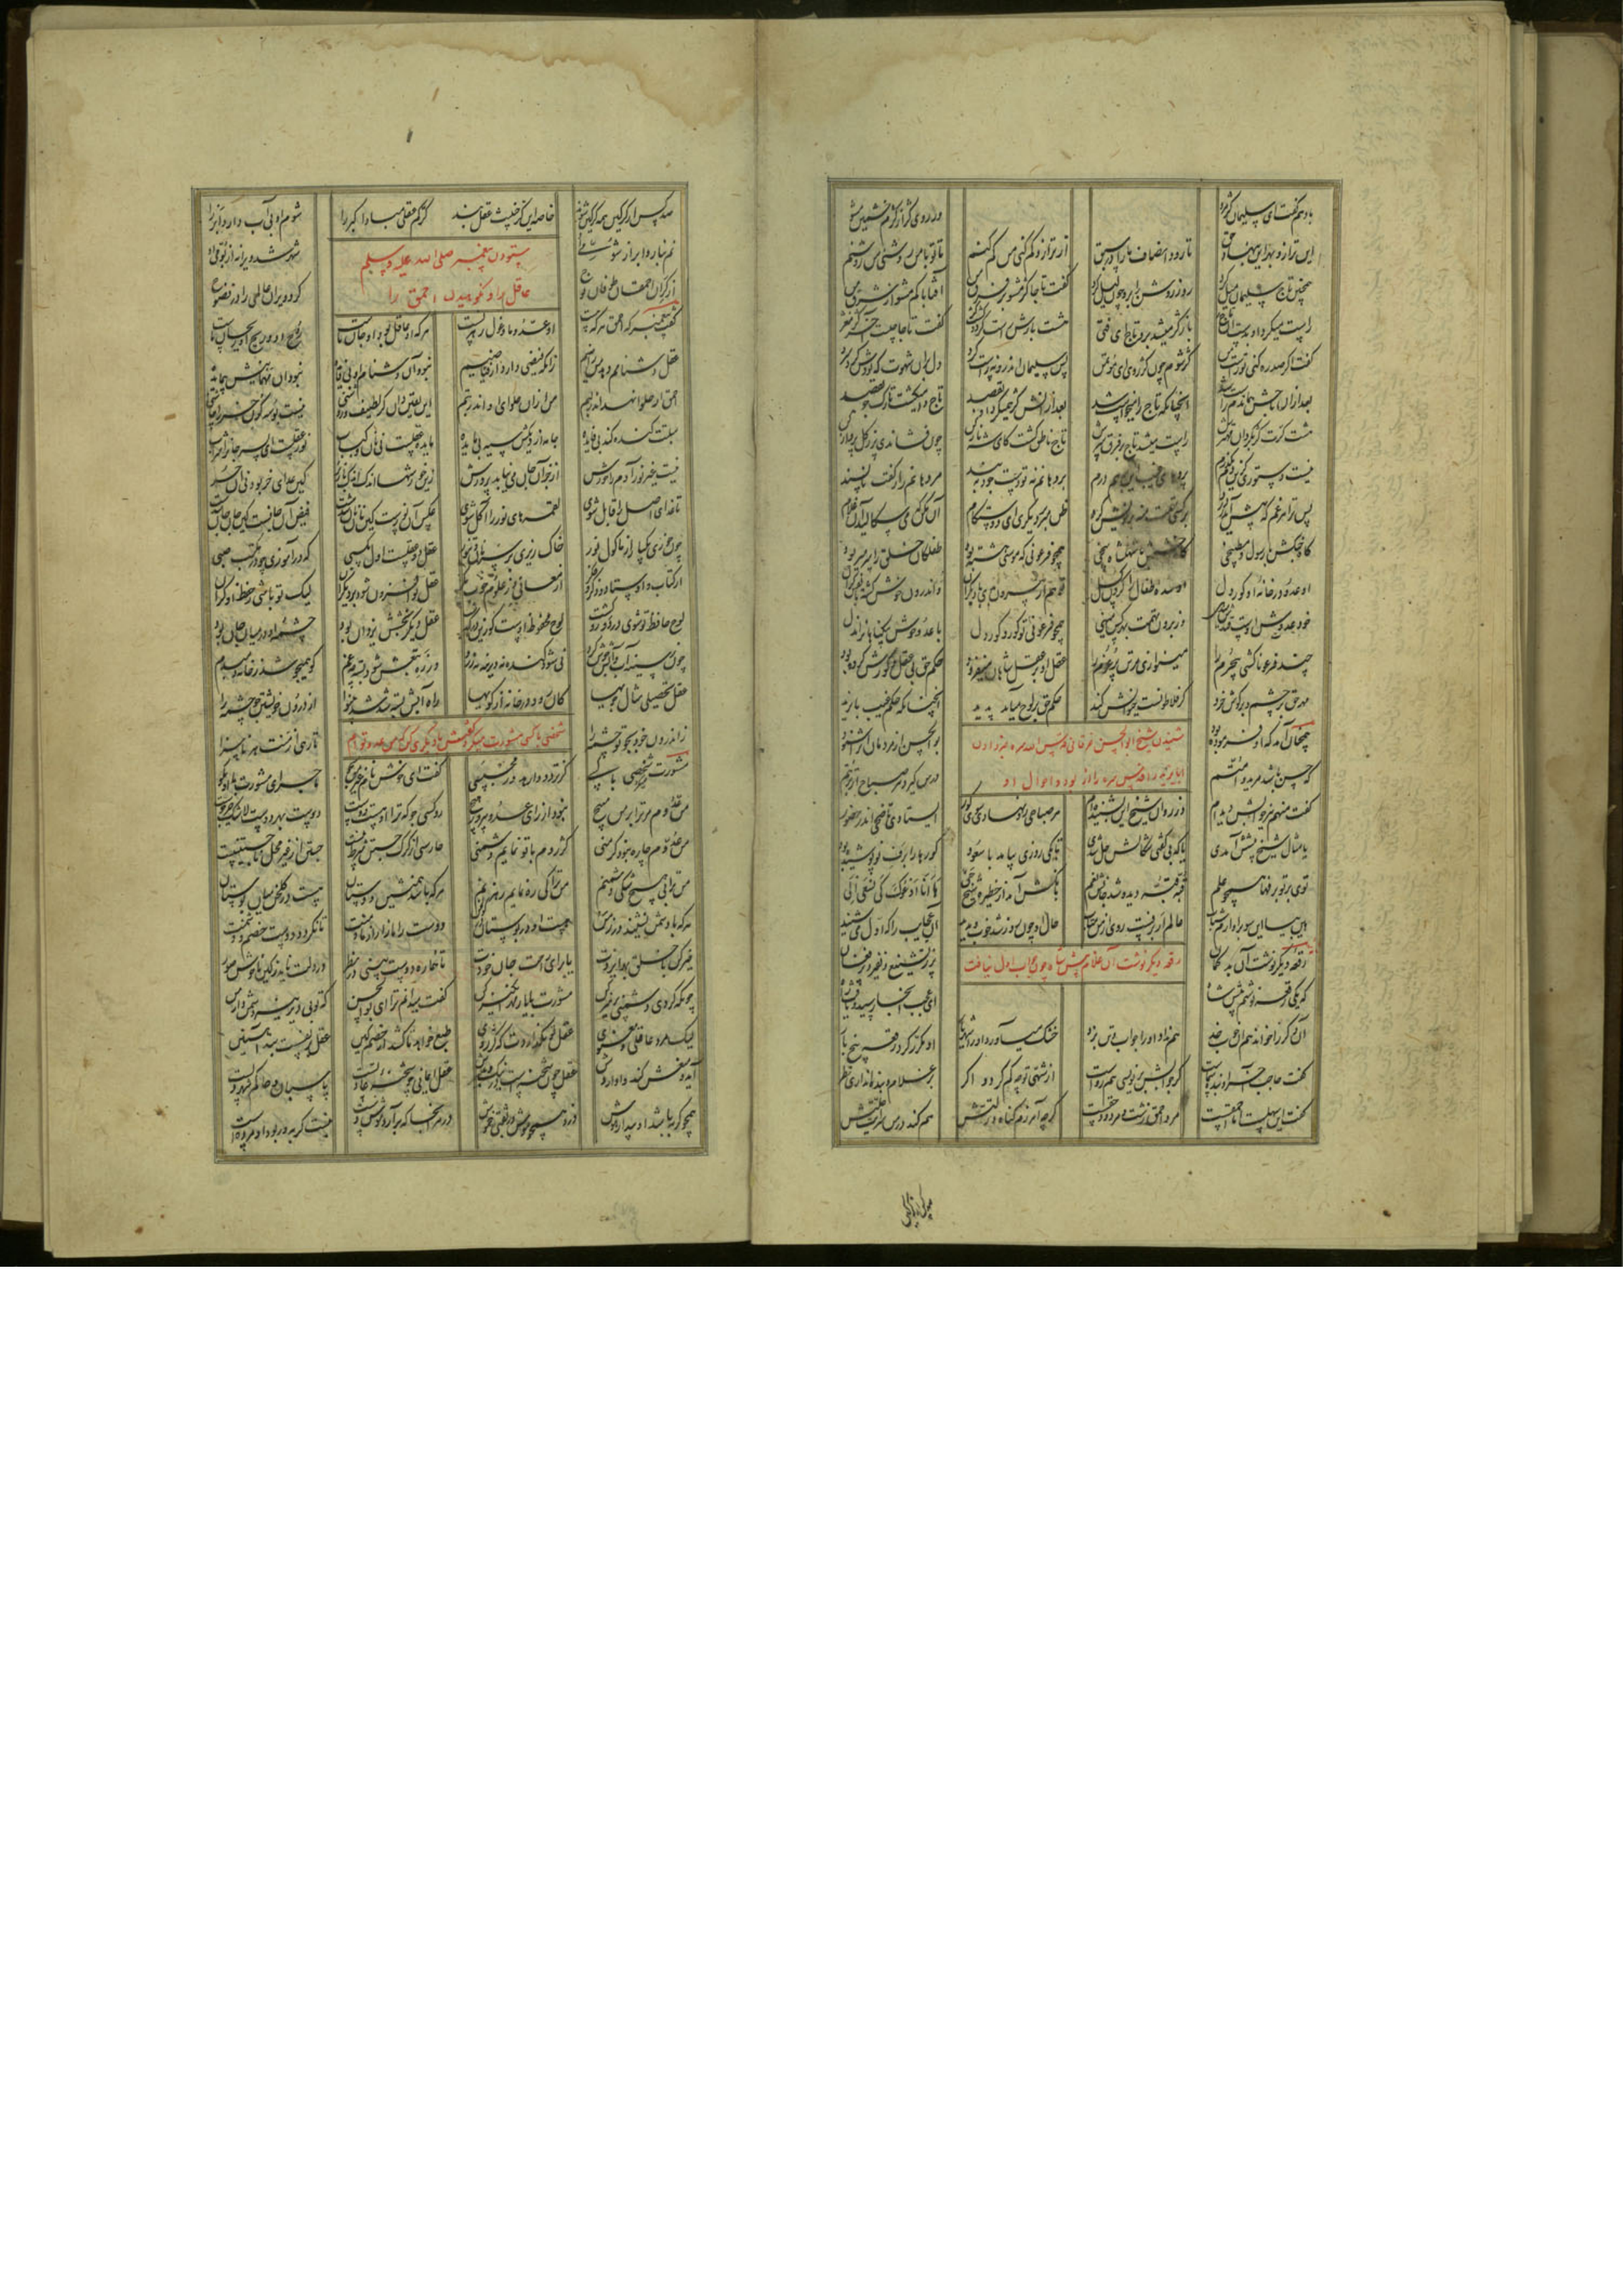 باد هم گفت ای سلیمان کژ مرو ور روی کژ از کژم خشمین مشو
این ترازو بهر این بنهاد حق تا رود انصاف ما را در سبق از ترازو کم کنی من کم کنم تا تو با من روشنی من روشنم
همچنین تاج سلیمان میل کرد روز روشن را برو چون لیل کرد گفت تاجا کژ مشو بر فرق من آفتابا کم مشو از شرق من
راست میکرد او بدست آن تاج را باز کژ میشد برو تاج ای فتی هشت بارش راست کرد و گشت کژ گفت تاجا چیست آخر کژ مغژ
گفت اگر صد ره کنی تو راست من کژ شوم چون کژ روی ای مؤتمن پس سلیمان اندرونه راست کرد دل بران شهوت که بودش کرد سرد
بعد ازان تاجش همان دم راست شد آنچنانکه تاج را میخواست شد بعد ازانش کژ همیکرد او بقصد تاج وا میگشت تارک جو بقصد
هشت کرت کژ بکرد آن مهترش راست میشد تاج بر فرق سرش تاج ناطق گشت کای شه ناز کن چون فشاندی پر ز گل پرواز کن
نیست دستوری کزین من بگذرم پردهای غیب این بر هم درم بر دهانم نه تو دست خود ببند مر دهانم را ز گفت ناپسند
پس ترا هر غم که پیش آید ز درد بر کسی تهمت منه بر خویش گرد ظن مبر بر دیگری ای دوستکام آن مکن که می سگالید آن غلام
گاه جنگش با رسول و مطبخی گاه خشمش با شهنشاه سخی همچو فرعونی که موسی هشته بود طفلکان خلق را سر میربود
آن عدو در خانه آن کور دل او شده طفلان را گردن گسل تو هم از بیرون بدی با دیگران واندرون خوش گشته با نفس گران
خود عدوت اوست قندش میدهی وز برون تهمت بهر کس مینهی همچو فرعونی تو کور و کور دل با عدو خوش بی گناهان را مذل
چند فرعونا کشی بی جرم را مینوازی مر تن پر غرم را عقل او بر عقل شاهان میفزود حکم حق بی عقل و کورش کرده بود
مهر حق بر چشم و بر گوش خرد گر فلاطونست حیوانش کند حکم حق بر لوح میآید پدید آنچنانکه حکم غیب بایزید
شنیدن شیخ ابو الحسن خرقانی قدس الله سره خبر دادن
ابا یزید را قدس سره از بود و احوال او
همچنان آمد که او فرموده بود بو الحسن از مردمان آن را شنود
که حسن باشد مرید و امتم درس گیرد هر صباح از تربتم
گفت من هم نیز خوابش دیده ام وز روان شیخ این بشنیده ام هر صباحی رو نهادی سوی گور ایستادی تا ضحی اندر حضور
یا مثال شیخ پیشش آمدی یا که بی گفتی شکالش حل شدی تا یکی روزی بیامد با سعود گورها را برف نو پوشیده بود
توی بر تو برفها همچون علم قبه قبه دیده و شد جانش بغم بانگش آمد از حظیره شیخ حی ها انا ادعوک کی تسعی الی
هین بیا این سو بر آوازم شتاب عالم ار برفست روی از من متاب حال او زان روز شد خوب و بدید آن عجایب را که اول می شنید
رقعه دیگر نوشتن آن غلام پیش شاه چون جواب اول نیافت
رقعه دیگر نوشت آن بد گمان پر ز تشنیع و نفیر و پر فغان
که یکی رقعه نوشتم پیش شاه ای عجب آنجا رسید و یافت راه
آن دگر را خواند هم آن خوب خد هم نداد او را جواب و تن بزد خشک میآورد او را شهریار او مکرر کرد رقعه پنج بار
گفت حاجب آخر او بنده شماست گر جوابش بر نویسی هم رواست از شهی تو چه کم گردد اگر بر غلام و بنده اندازی نظر
گفت این سهلست اما احمقست مرد احمق زشت و مردود حقست گرچه آمرزم گناه و زلتش هم کند در من سرایت علتش
صد کس از گرگین همه گرگین شوند خاصه این گر خبیث عقل بند گر کم عقلی مبادا گبر را شوم او بی آب دارد ابر را
نم نبارد ابر از شومی او شهر شد ویرانه از بومی او
از گر آن احمقان طوفان نوح کرد ویران عالمی را در فضوح
ستودن پیغمبر صلی الله علیه وسلم
عاقل را و نکوهیدن احمق را
گفت پیغمبر که احمق هر که هست او عدو ما و غول رهزنست هر که او عاقل بود او جان ماست روح او و ریح او ریحان ماست
عقل دشنامم دهد من راضیم زانکه فیضی دارد از فیاضیم نبود آن دشنام او بی فایده نبود آن مهمانیش بی مایده
احمق ار حلوا نهد اندر لبم من ازان حلوای او اندر تبم این یقین دان گر لطیف و روشنی نیست بوسه کون خر را چاشنی
سبلتت گنده کند بی فایده جامه از دیگش سیه بی مایده مایده عقلست نی نان و کباب نور عقلست ای پسر جان را شراب
نیست غیر نور آدم را خورش از جز آن جان می نیابد پرورش زین خورشها اندک اندک باز بر کین غذای خر بود نی آن حر
تا غذای اصل را قابل شوی لقمهای نور را آکل شوی عکس آن نورست کین نان نان شدست فیض آن جانست کین جان جان شدست
چون خوری یکبار از ماکول نور خاک ریزی بر سر نان تنور عقل دو عقلست اول مکسبی که در آموزی چو در مکتب صبی
از کتاب و اوستاد و ذکر و فکر از معانی وز علوم خوب و بکر عقل تو افزون شود بر دیگران لیک تو باشی ز حفظ او گران
لوح حافظ تو شوی در دور و گشت لوح محفوظ اوست کو زین در گذشت عقل دیگر بخشش یزدان بود چشمه او در میان جان بود
چون ز سینه آب دانش جوش کرد نی شود گنده نه دیرینه نه زرد ور ره نقبش شود بسته چه غم کو همیجوشد ز خانه دم بدم
عقل تحصیلی مثال جویها کان رود در خانه از کویها راه آبش بسته شد شد بینوا از درون خویشتن جو چشمه را
زاندرون خود بجو تو چشمه را تا رهی از منت هر ناسزا
شخصی با کسی مشورت میکرد گفتش با دیگری کن که من عدو توام
مشورت میکرد شخصی با کسی کز تردد وارهد وز محبسی گفت ای خوش نام غیر من بجو ماجرای مشورت با او بگو
من عدوم مر ترا با من مپیچ نبود از رای عدو پیروز هیچ رو کسی جو که ترا او هست دوست دوست بهر دوست لاشک خیر جوست
من عدوم چاره نبود کز منی کژ روم با تو نمایم دشمنی حارسی از گرگ جستن شرط نیست جستن از غیر محل ناجستنیست
من ترا بی هیچ شکی دشمنم من ترا کی ره نمایم ره زنم هر که باشد همنشین دوستان هست در گلخن میان بوستان
هر که با دشمن نشیند در زمن هست او در بوستان در گولخن دوست را مازار از ما و منت تا نگردد دوست خصم و دشمنت
خیر کن با خلق بهر ایزدت یا برای راحت جان خودت تا هماره دوست بینی در نظر در دلت ناید ز کین ناخوش صور
چونکه کردی دشمنی پرهیز کن مشورت با یار مهرانگیز کن گفت میدانم ترا ای بو الحسن که توی دیرینه دشمن دار من
لیک مرد عاقلی و معنوی عقل تو نگذاردت که کژ روی طبع خواهد تا کشد از خصم کین عقل بر نفس است بند آهنین
آید و منعش کند وا داردش عقل چون شحنه ست در نیک و بدش عقل ایمانی چو شحنه عادلست پاسبان و حاکم شهر دلست
همچو گربه باشد او بیدار هوش دزد در سوراخ ماند همچو موش در هر آنجا که بر آرد موش دست نیست گربه ور بود او مرده است